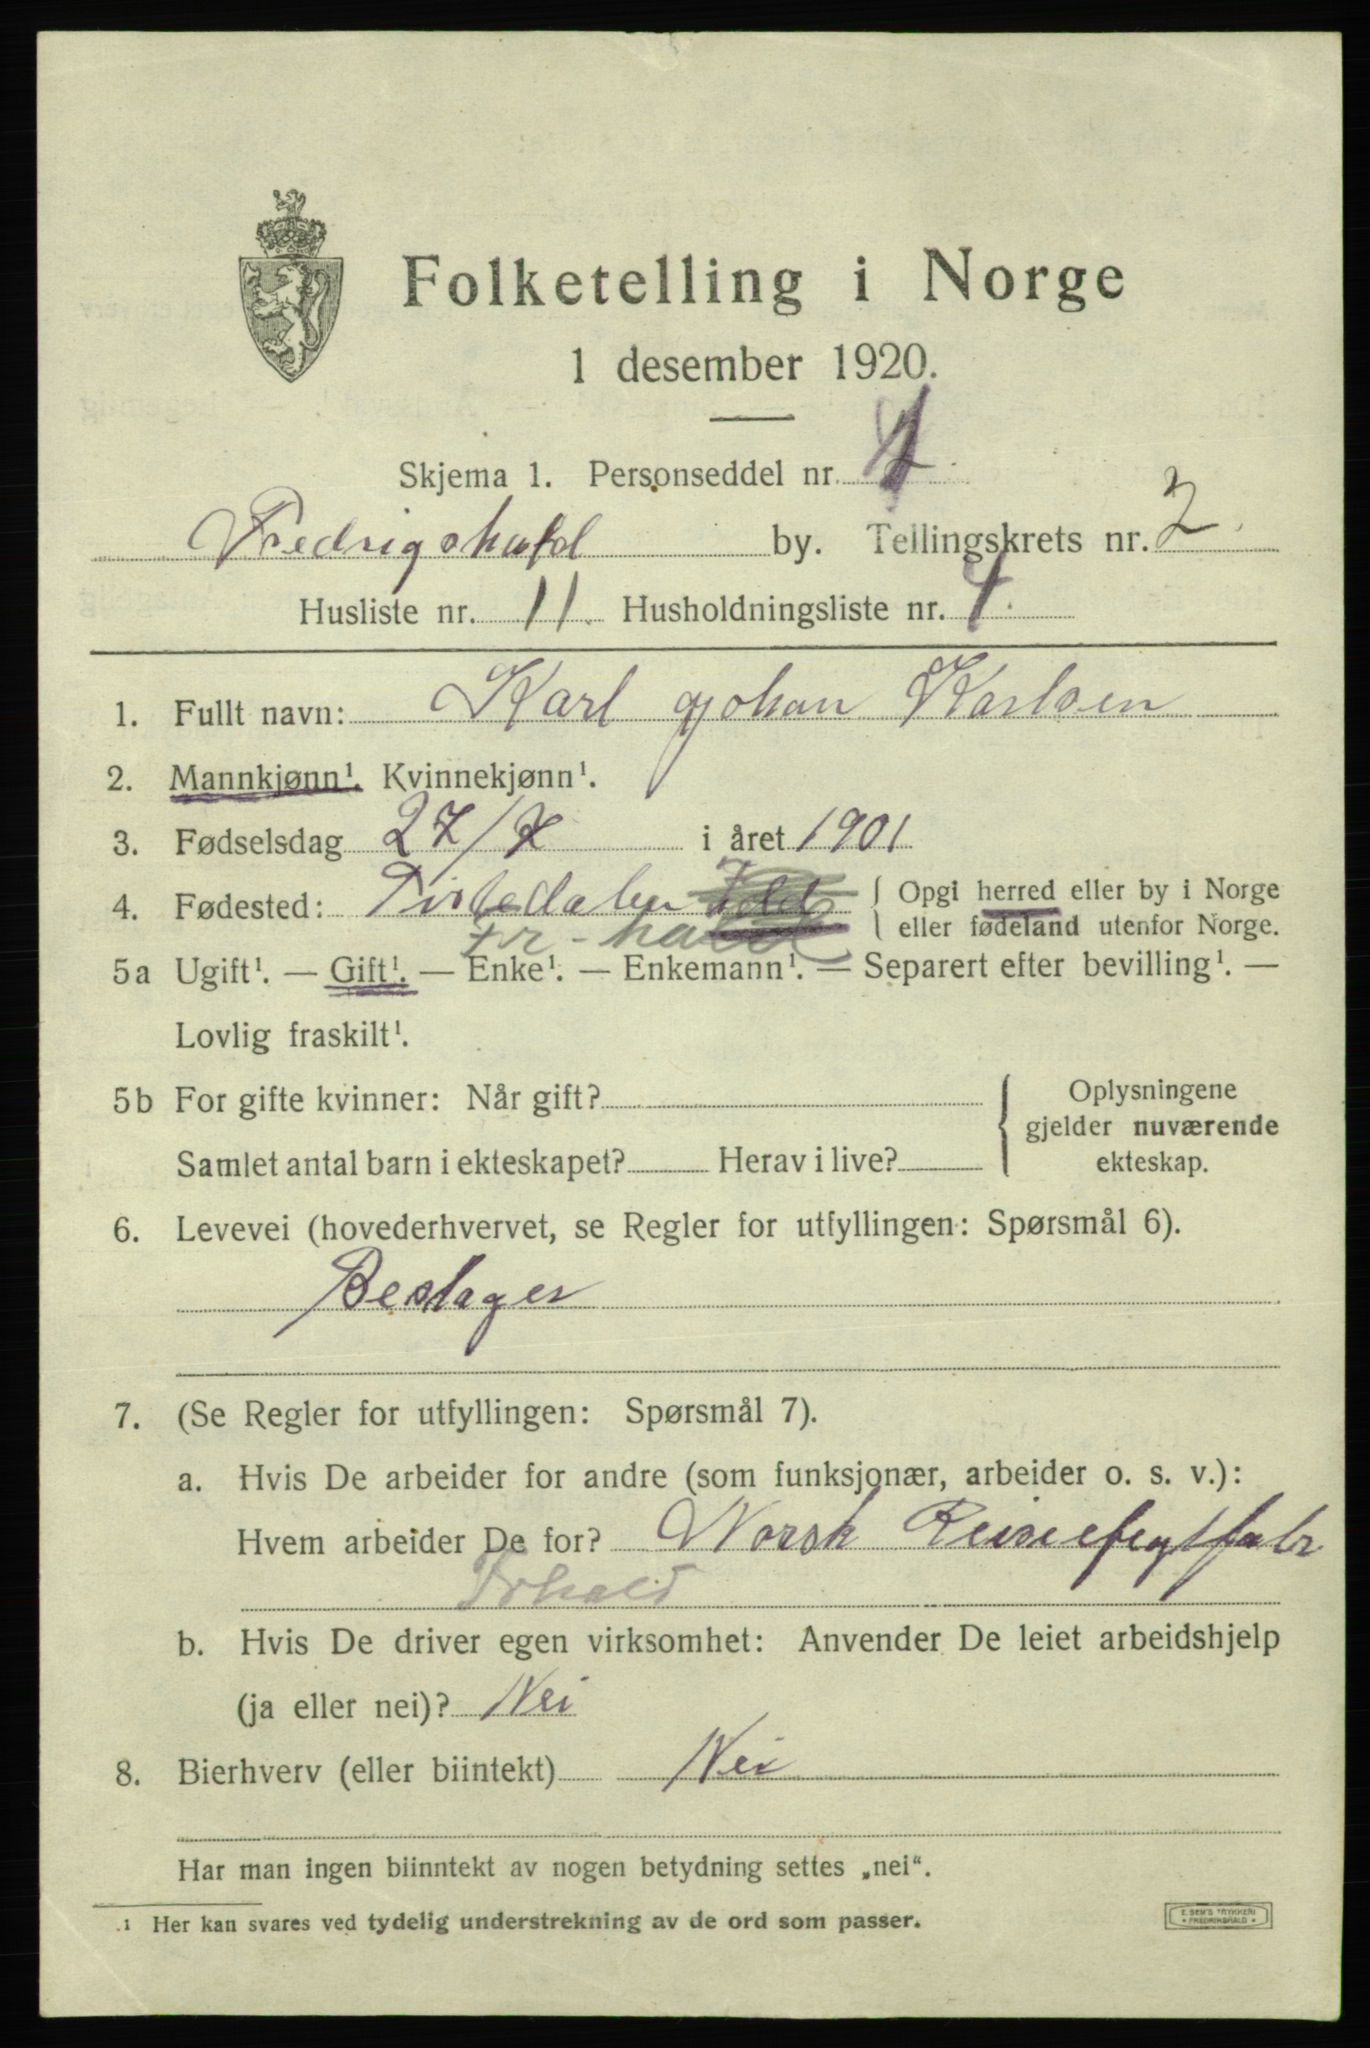 Folketelling i Norge
1 desember 1920.
Skjema 1. Personseddel nr. 1
Fredrigshald by. Tellingskrets nr. 2.
Husliste nr. 11. Husholdningsliste nr. 4.
1. Fullt navn: Karl Johan Karlsen
2. Mannkjønn¹. Kvinnekjønn¹.
3. Fødselsdag 27/7 i året 1901
4. Fødested: Tistedalen { Opgi herred eller by i Norge
Fr-hald { eller fødeland utenfor Norge.
5a Ugift¹. — Gift¹. — Enke¹. — Enkemann¹. — Separert efter bevilling¹. —
Lovlig fraskilt¹.
5b For gifte kvinner: Når gift? { Oplysningene
gjelder nuværende
Samlet antal barn i ekteskapet? Herav i live? ekteskap.
6. Levevei (hovederhvervet, se Regler for utfyllingen: Spørsmål 6).
Beslager
7. (Se Regler for utfyllingen: Spørsmål 7).
a. Hvis De arbeider for andre (som funksjonær, arbeider o. s. v.):
Hvem arbeider De for? Norsk
Frhald
b. Hvis De driver egen virksomhet: Anvender De leiet arbeidshjelp
(ja eller nei)? Nei
8. Bierhverv (eller biintekt) Nei
Har man ingen biinntekt av nogen betydning settes „nei“.
¹ Her kan svares ved tydelig understrekning av de ord som passer.
E. SEM'S TRYKKERI
FREDRIKSHALD